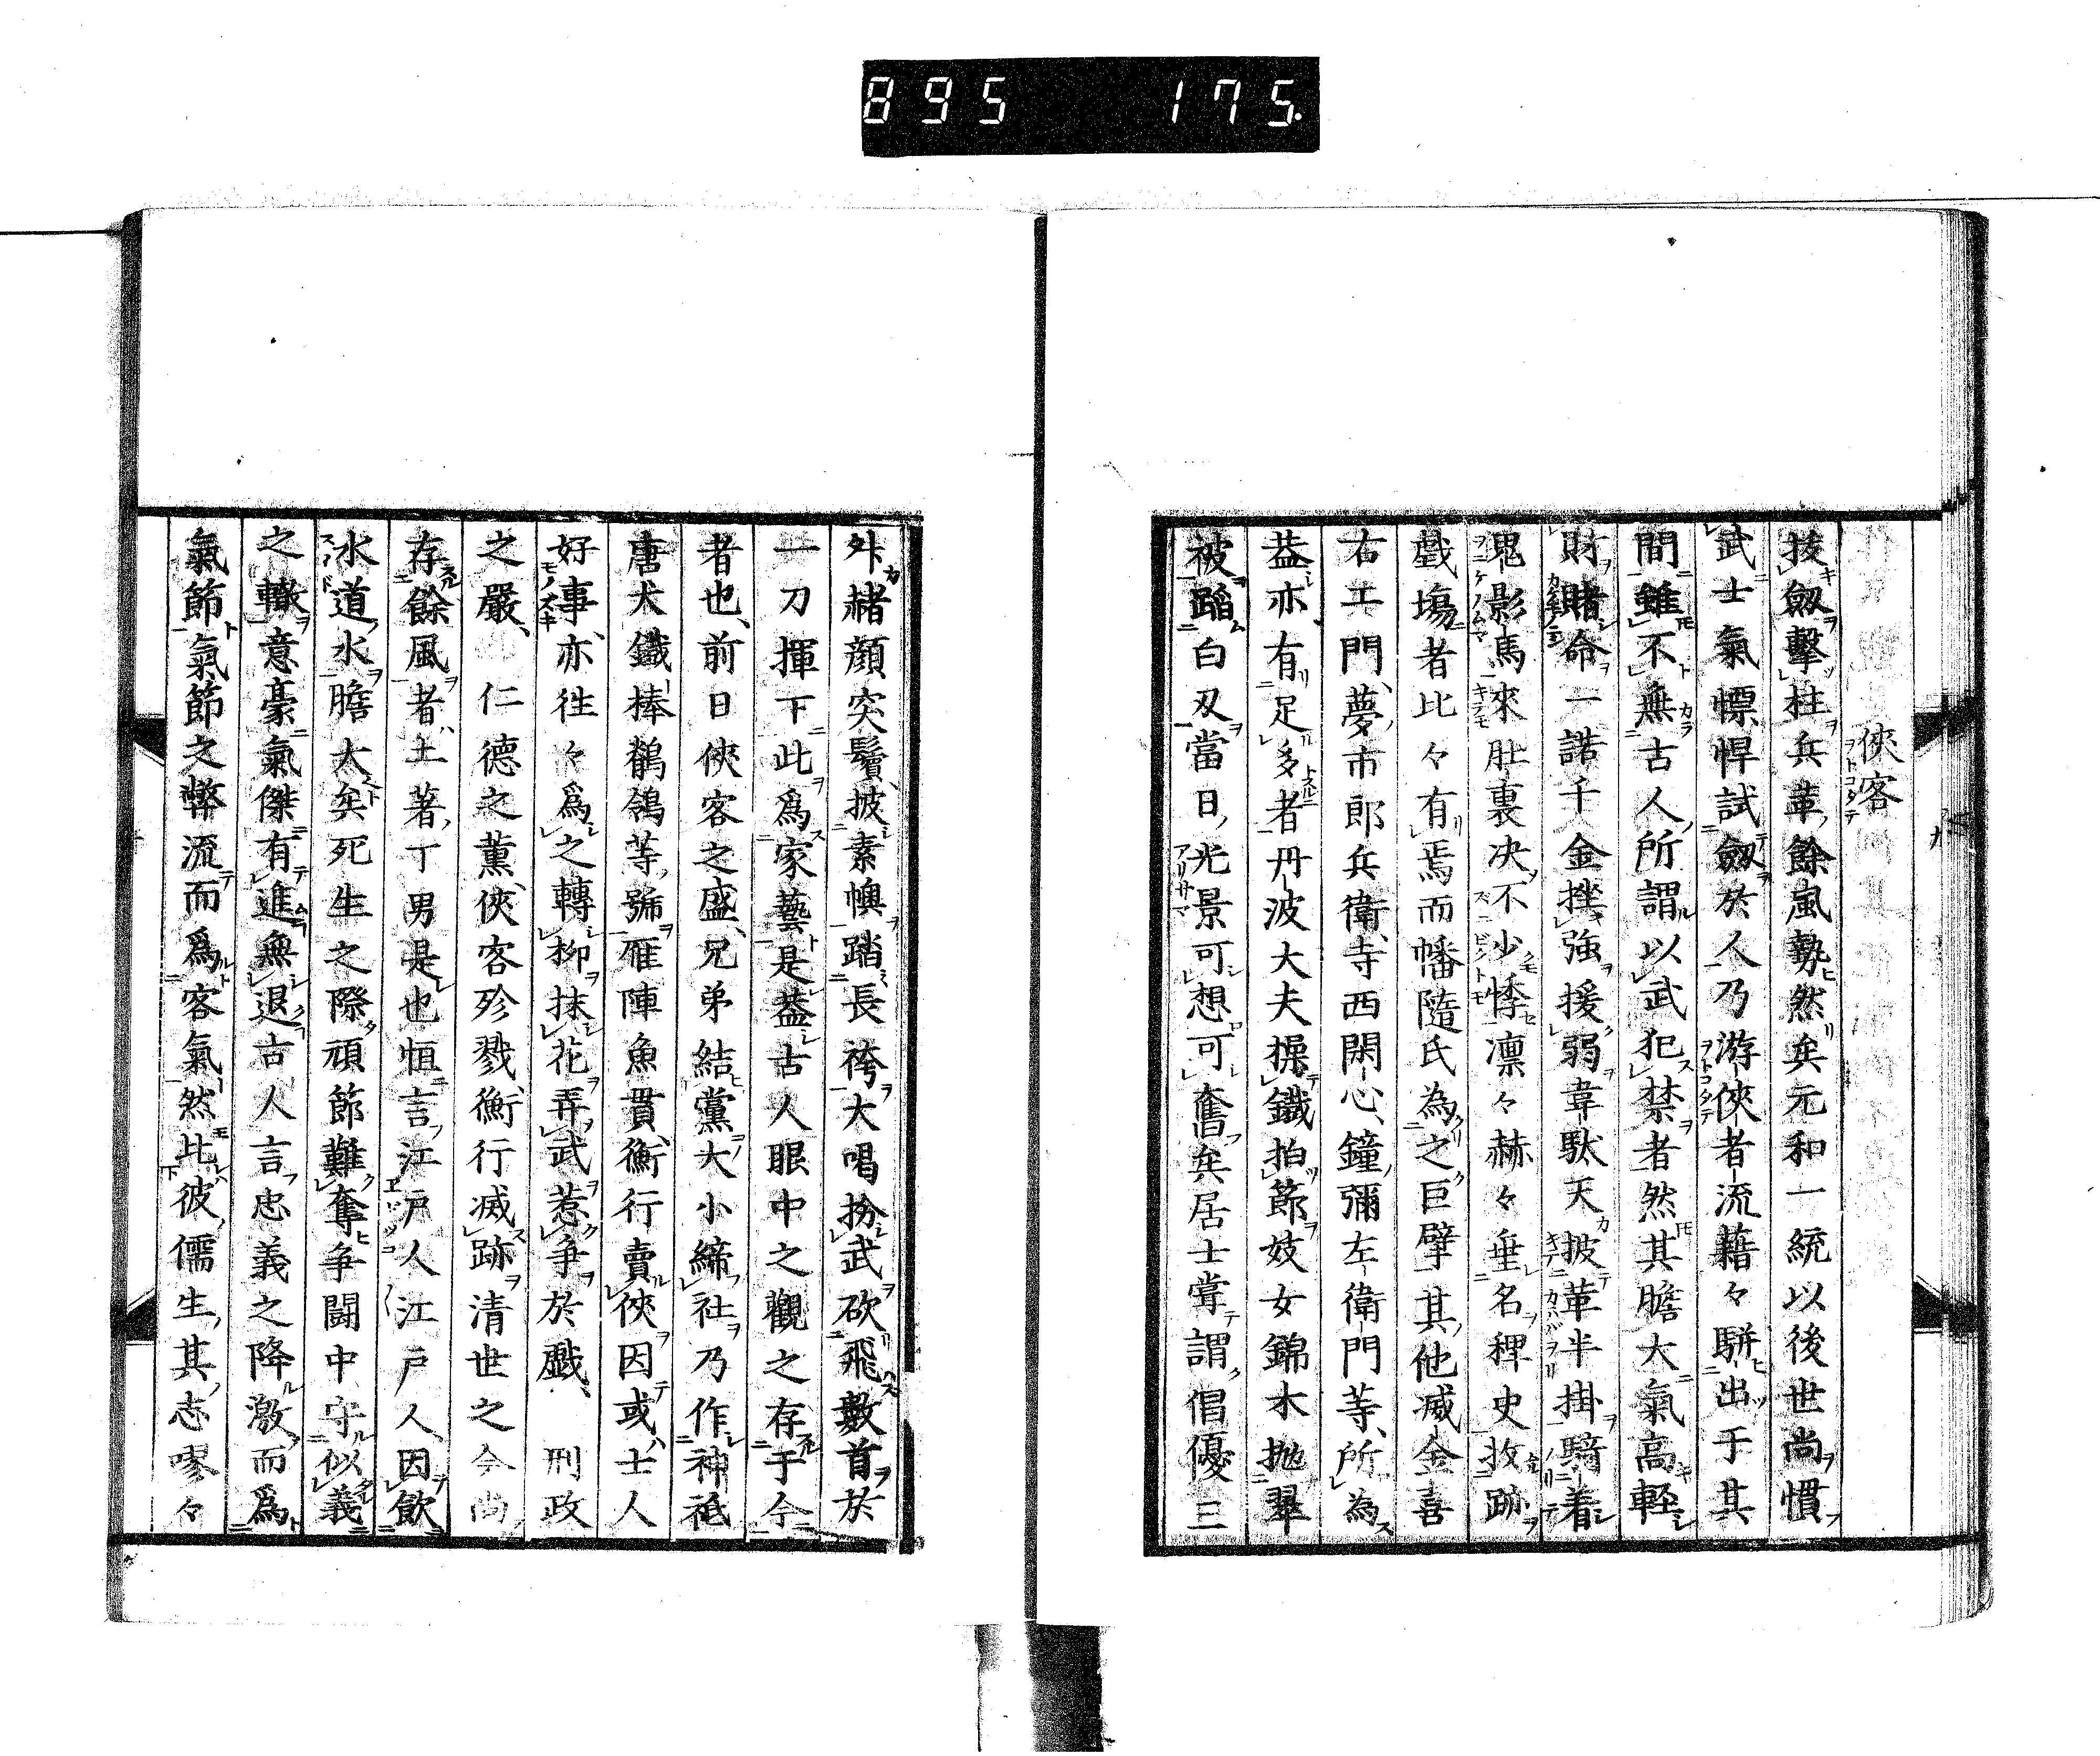 895 175.
俠客
拔劔擊柱兵革餘嵐勢然矣元和一統以後世尚慣
武士氣慓悍試劔於人乃游俠者流藉々駢出于其
間雖不無古人所謂以武犯禁者然其膽大氣高輕
財賭命一諾千金挫強援弱韋馱天披革半掛騎着
鬼影馬來肚裏决不少悸凛々赫々垂名稗史放跡
戲塲者比々有焉而幡隨氏為之巨擘其他减金喜
右工門夢市郎兵衛寺西閑心鐘彌左衛門等所為
葢亦有足多者丹波大夫操鐵拍節妓女錦木抛翠
被蹈白刄當日光景可想可奮矣居士嘗謂倡優三
外赭顔突鬢披素幞踏長袴大喝扮武砍飛數首於
一刀揮下此爲家藝是葢古人眼中之觀之存于今
者也前日俠客之盛兄弟結黨大小締社乃作神祇
唐犬鐵棒鶺鴒等號雁陣魚貫衡行賣俠因或士人
好事亦徃々爲之轉柳抹花弄武惹爭於戲刑政
之嚴仁德之薰俠客殄戮衡行滅跡清世之今尚
存餘風者土著丁男是也恒言江戸人江戸人因飲
水道水膽大矣死生之際頑節難奪爭闘中守似義
之轍意豪氣傑有進無退古人言忠義之降激而爲
氣節氣節之弊流而爲客氣然比彼儒生其志嘐々